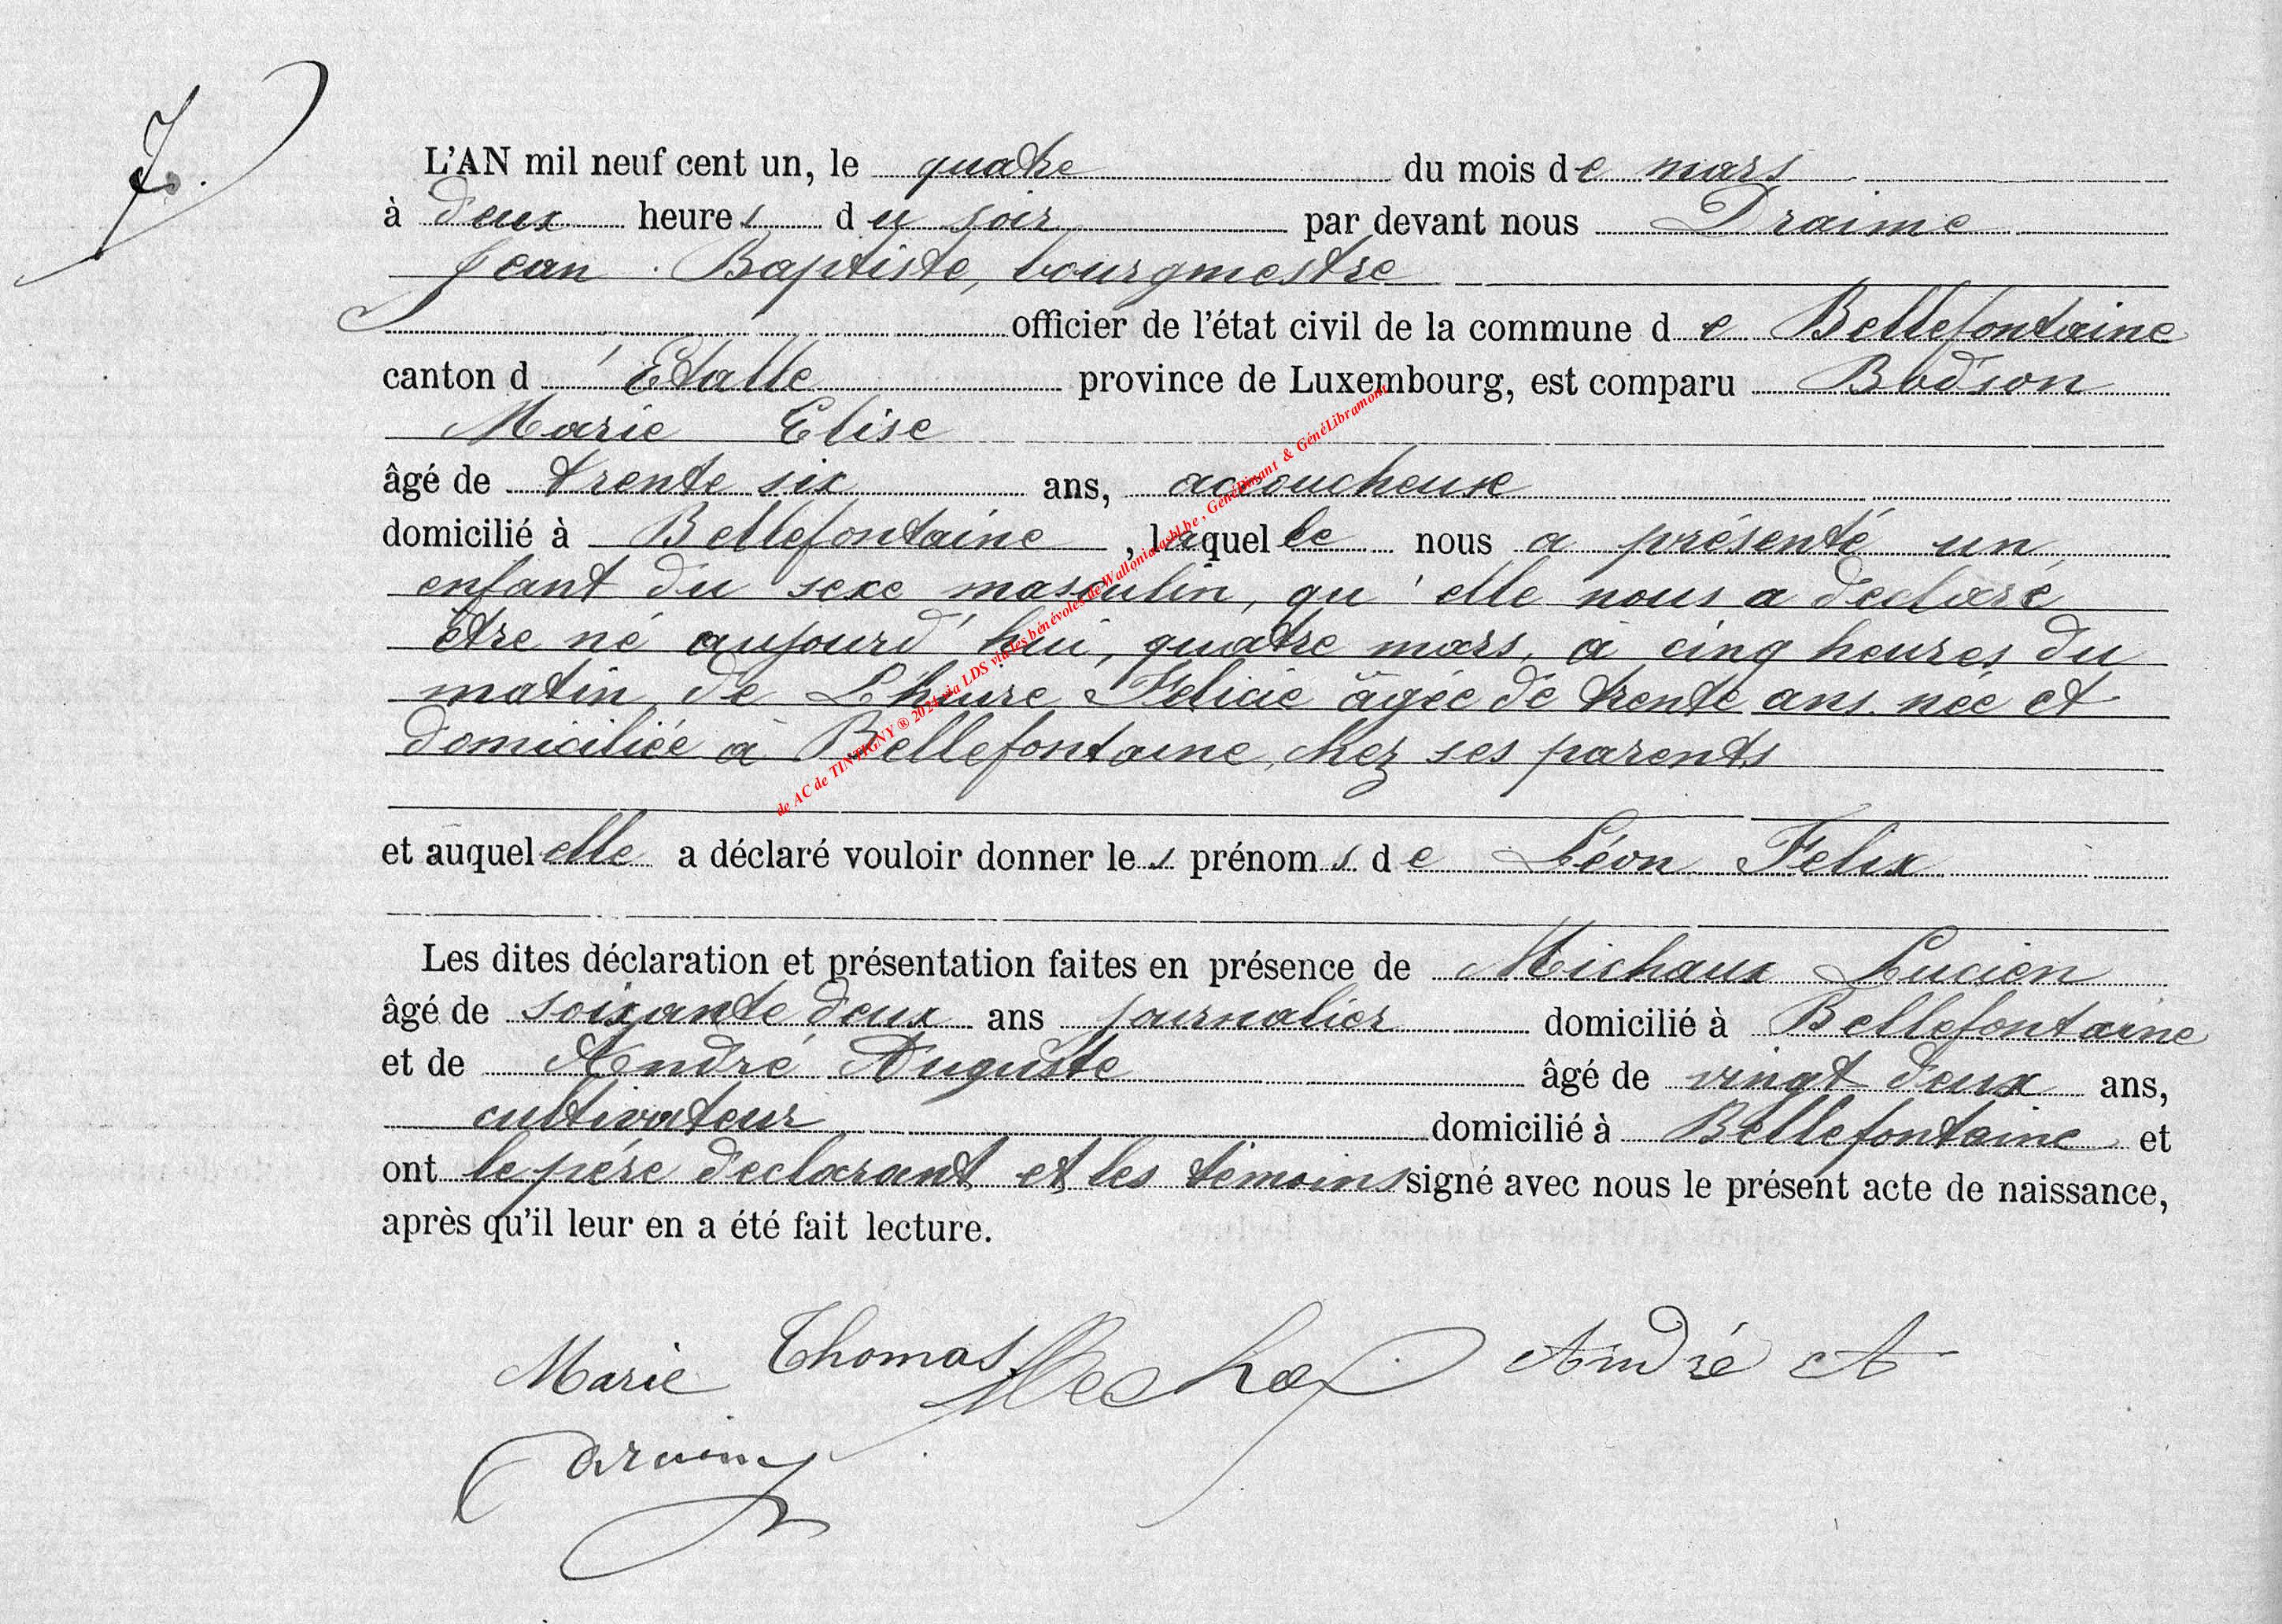 7.
L'AN mil neuf cent un, le quatre du mois de mars
à deux heures du soir par devant nous Draime
Jean Baptiste, bourgmestre
officier de l'état civil de la commune de Bellefontaine
canton d'Etalle province de Luxembourg, est comparu Bodson
Marie Elise
âgé de trente six ans, accoucheuse
domicilié à Bellefontaine, laquelle nous a présenté un
enfant du sexe masculin, qu'elle nous a declaré
être né aujourd'hui, quatre mars, à cinq heures du
matin, de Felicie âgée de trente ans née et
domiciliée à Bellefontaine, chez ses parents
et auquel elle a déclaré vouloir donner les prénoms de Léon Felix
Les dites déclaration et présentation faites en présence de Michaux Lucien
âgé de soixante deux ans journalier domicilié à Bellefontaine
et de André Auguste âgé de vingt deux ans,
cultivateur domicilié à Bellefontaine et
ont le père declarant et les témoins signé avec nous le présent acte de naissance,
après qu'il leur en a été fait lecture.
Marie Thomas André A
de AC de TINTIGNY ® 2024 via LDS via les bénévoles de Wallonia asbl.be, GénéDinant & GénéLibramont